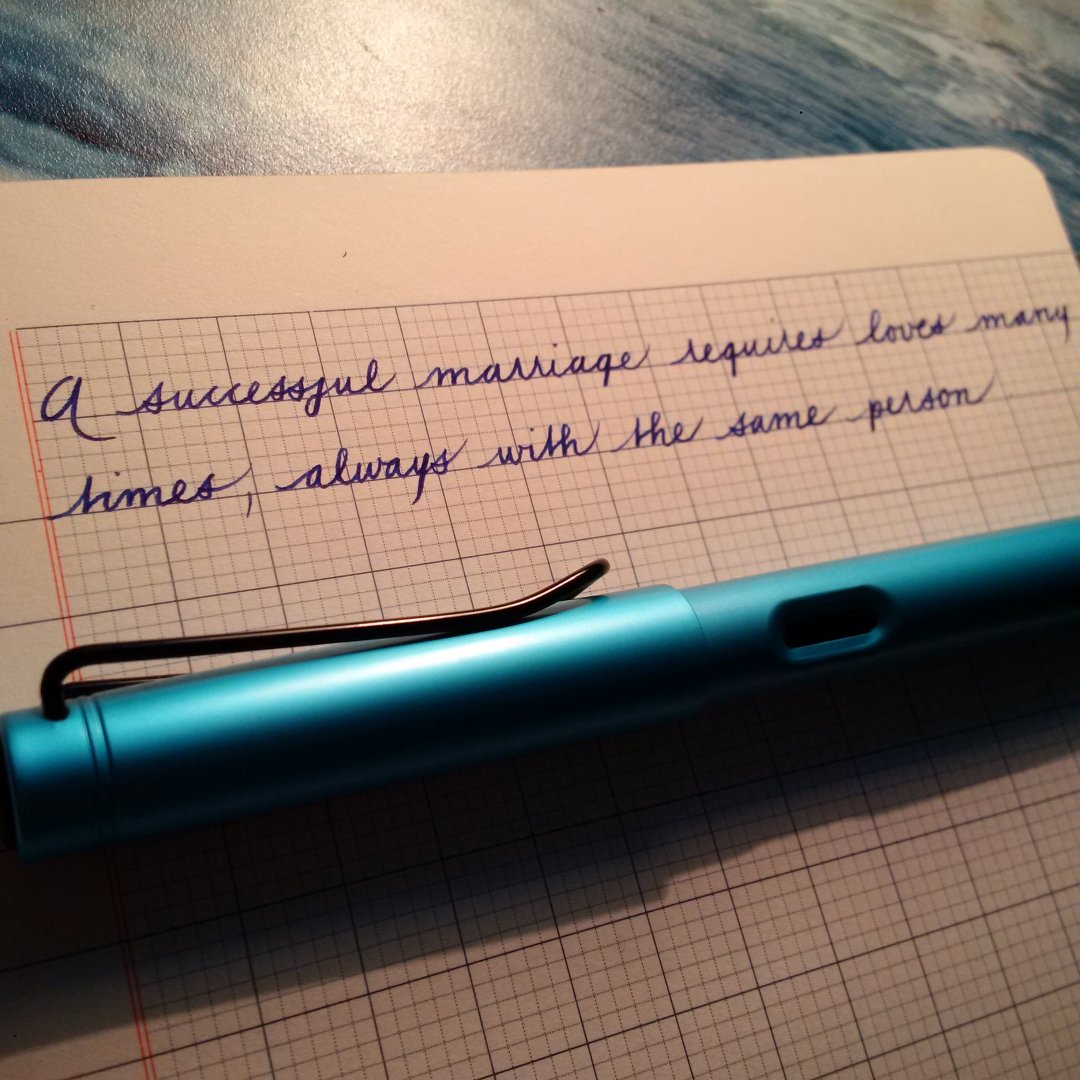 A successful marriage requires loves many
times, always with the same person